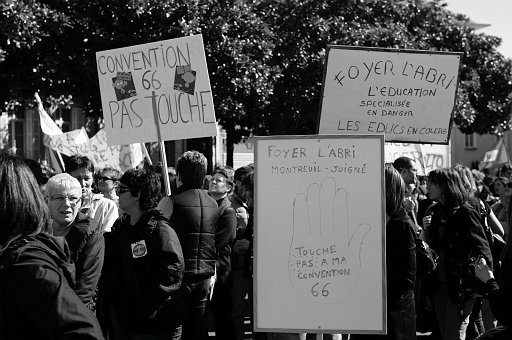 CONVENTION
66
PAS TOUCHE
FOYER L'ABRI
L'EDUCATION
SPÉCIALISÉE
EN DANGER
LES EDUCS EN COLERE
FOYER L'ABRI
MONTREUIL-JUIGNÉ
TOUCHE
PAS A MA
CONVENTION
66